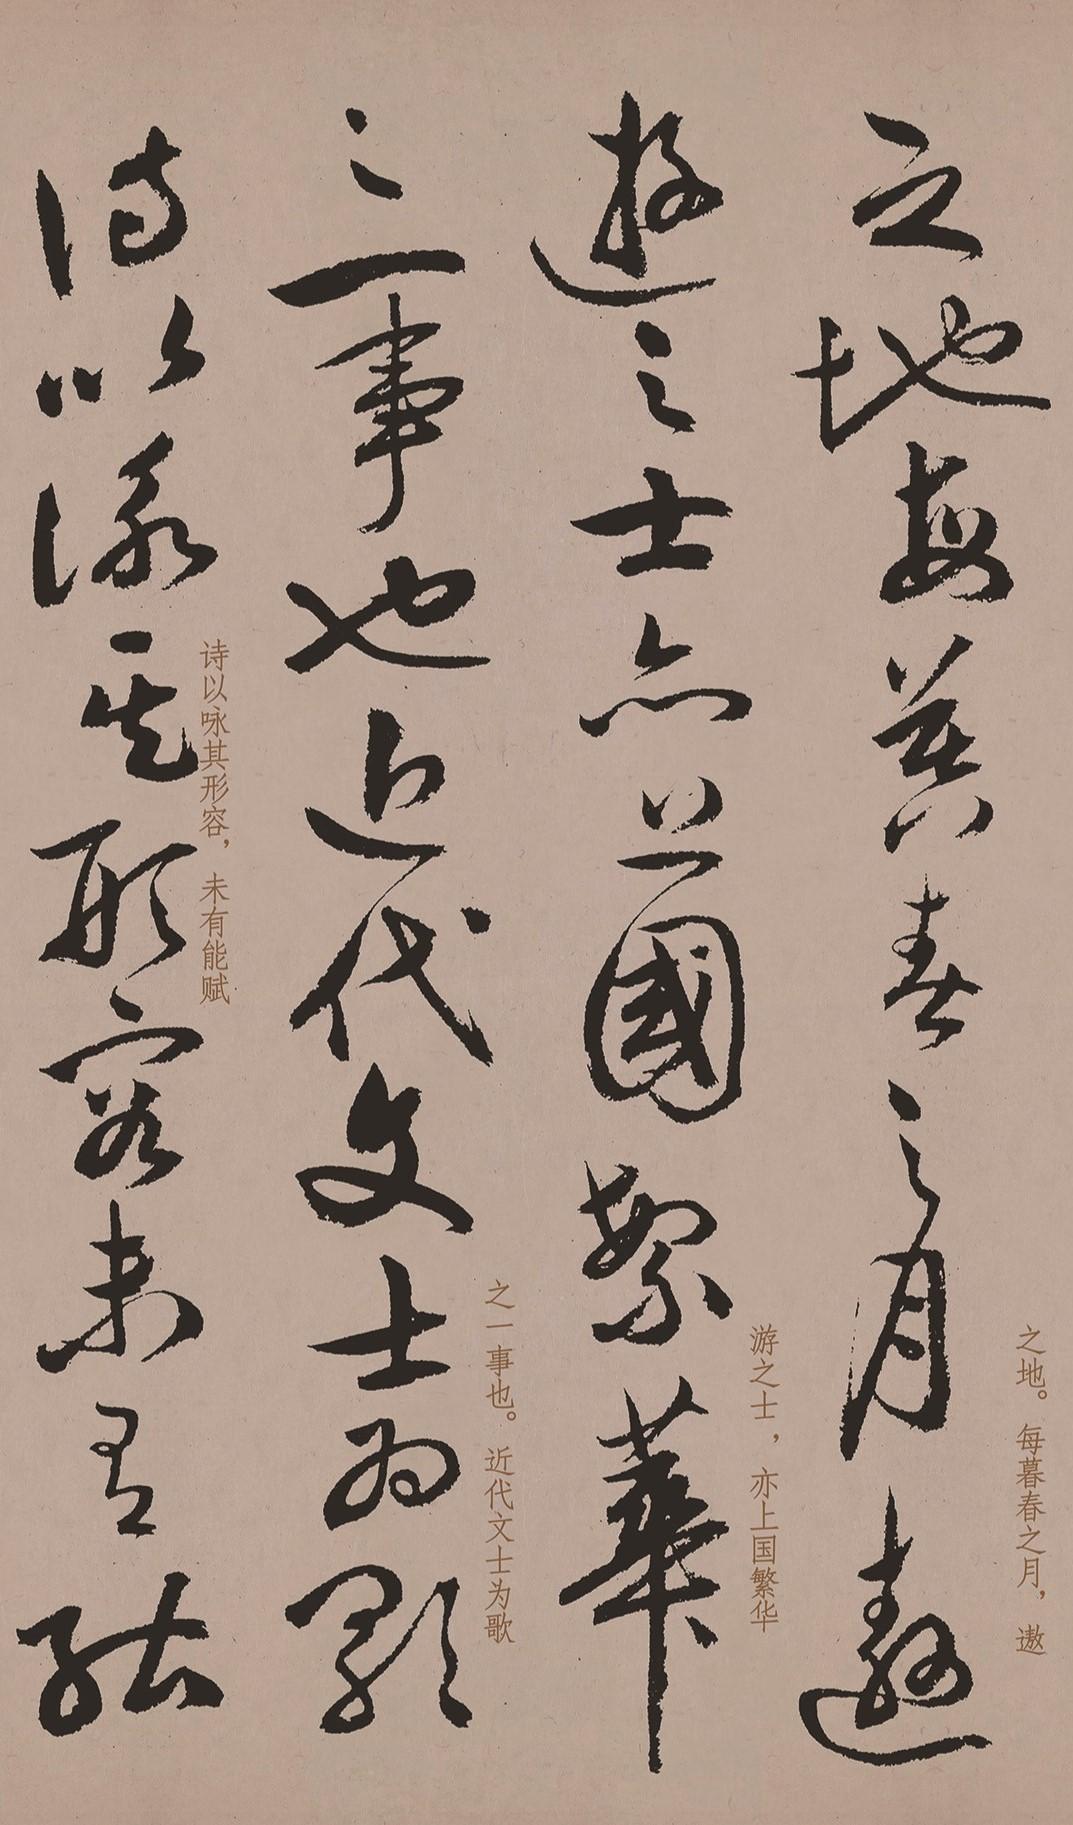 之地每暮春之月遨
之地。每暮春之月，遨
遊之士亦上國繁華
游之士，亦上国繁华
之一事也近代文士為歌
之一事也。近代文士为歌
詩以詠其形容未有能
诗以咏其形容，未有能赋